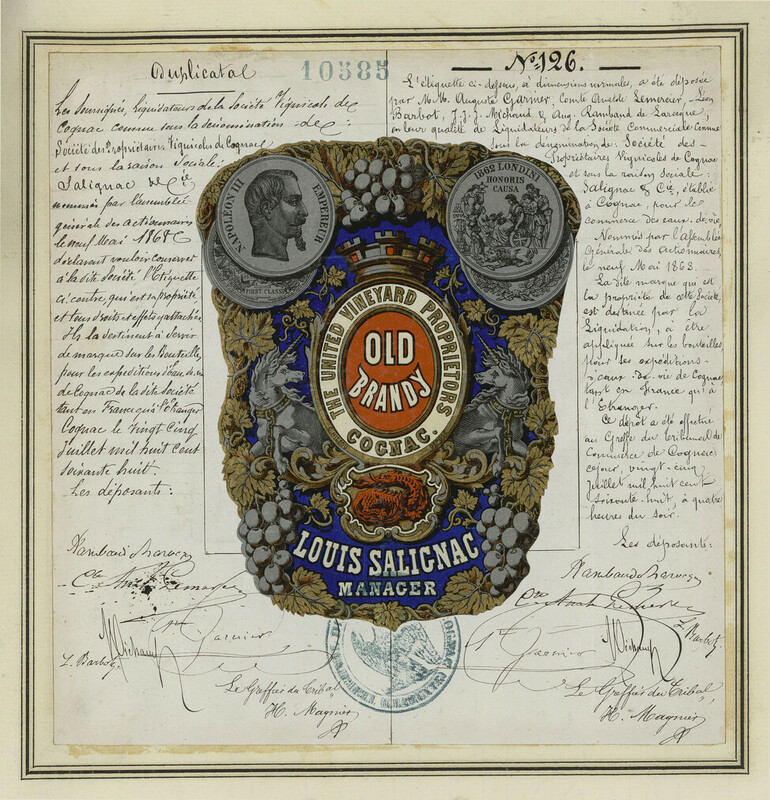 Duplicatat
10585
Nº 126.
Les Soussignés, Liquidateurs de la Société Vignicole de
Cognac connue sous la dénomination de :
Société des Propriétaires Vignicoles de Cognac
et sous la raison Sociale :
Salignac & Cie
nommés par l'assemblée
générale des actionnaires
le neuf Mai 1868
déclarent vouloir conserver
à la dite Société l'Etiquette
ci-contre, qui est sa propriété
et tous droits et effets y attachés
Ils la destinent à servir
de marque sur les Bouteilles,
pour les expéditions d'eau de vie
de Cognac de la dite Société
tant en France qu'à l'Etranger
Cognac le vingt Cinq
Juillet mil huit cent
Soixante huit
Les déposants :
L'étiquette ci-dessus, à dimensions normales, a été déposée
par M.M. Auguste Garnier, Comte Anatole Lemercier, Léon
Barbot, J.J. Michaud & Aug. Rambaud de Larocque,
en leur qualité de Liquidateurs de la Société Commerciale Connue
sous la dénomination de Société des
Propriétaires Vignicoles de Cognac
et sous la raison Sociale :
Salignac & Cie, établie
à Cognac, pour le
commerce des eaux-de-vie.
Nommés par l'Assemblée
Générale des Actionnaires,
le neuf Mai 1868.
La dite marque qui est
la propriété de cette Société,
est destinée par la
Liquidation, à être
appliquée sur les bouteilles
pour ses expéditions
d'eaux de vie de Cognac,
tant en France qu'à
l'Etranger.
Ce dépôt a été effectué
au Greffe du Tribunal de
Commerce de Cognac
cejour, vingt-cinq
Juillet mil huit cent
soixante huit, à quatre
heures du soir.
Les déposants :
NAPOLEON III EMPEREUR
FIRST CLASS
1862 LONDINI
HONORIS
CAUSA
THE UNITED VINEYARD PROPRIETORS
COGNAC.
OLD
BRANDY
LOUIS SALIGNAC
MANAGER
Michaud
Garnier
L. Barbot
Le Greffier du Tribal
H. Magnier
Michaud
L. Barbot
Garnier
Le Greffier du Tribal,
H. Magnier